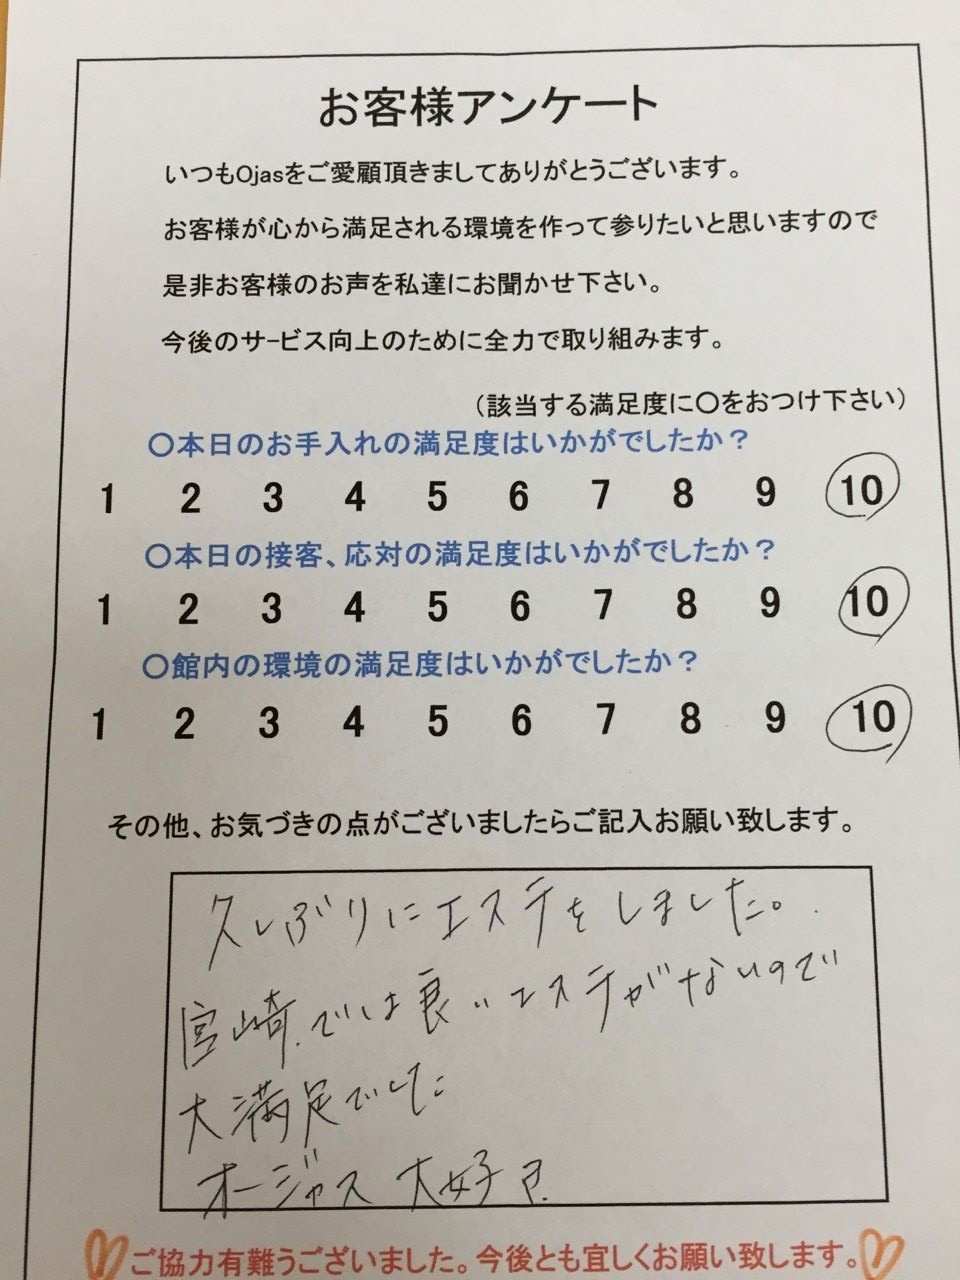 お客様アンケート
いつもOjasをご愛顧頂きましてありがとうございます。
お客様が心から満足される環境を作って参りたいと思いますので
是非お客様のお声を私達にお聞かせ下さい。
今後のサービス向上のために全力で取り組みます。
（該当する満足度に〇をおつけ下さい）
〇本日のお手入れの満足度はいかがでしたか？
1 2 3 4 5 6 7 8 9 10
〇本日の接客、応対の満足度はいかがでしたか？
1 2 3 4 5 6 7 8 9 10
〇館内の環境の満足度はいかがでしたか？
1 2 3 4 5 6 7 8 9 10
その他、お気づきの点がございましたらご記入お願い致します。
久しぶりにエステをしました。
宮崎では良いエステがないので
大満足でした
オージャス 大好き
ご協力有難うございました。今後とも宜しくお願い致します。